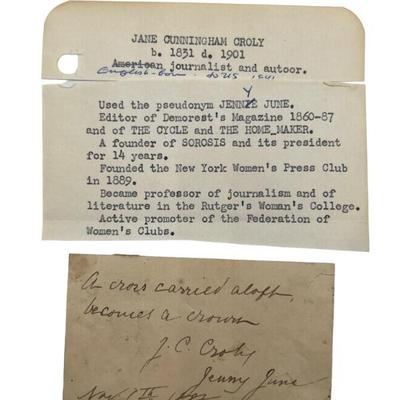 JANE CUNNINGHAM CROLY
b. 1831 d. 1901
American journalist and autoor.
English-born to US
Used the pseudonym JENNY JUNE.
Editor of Demorest's Magazine 1860-87
and of THE CYCLE and THE HOME MAKER.
A founder of SOROSIS and its president
for 14 years.
Founded the New York Women's Press Club
in 1889.
Became professor of journalism and of
literature in the Rutger's Woman's College.
Active promoter of the Federation of
Women's Clubs.
A cross carried aloft
becomes a crown
J. C. Croly
Jenny June
Nov